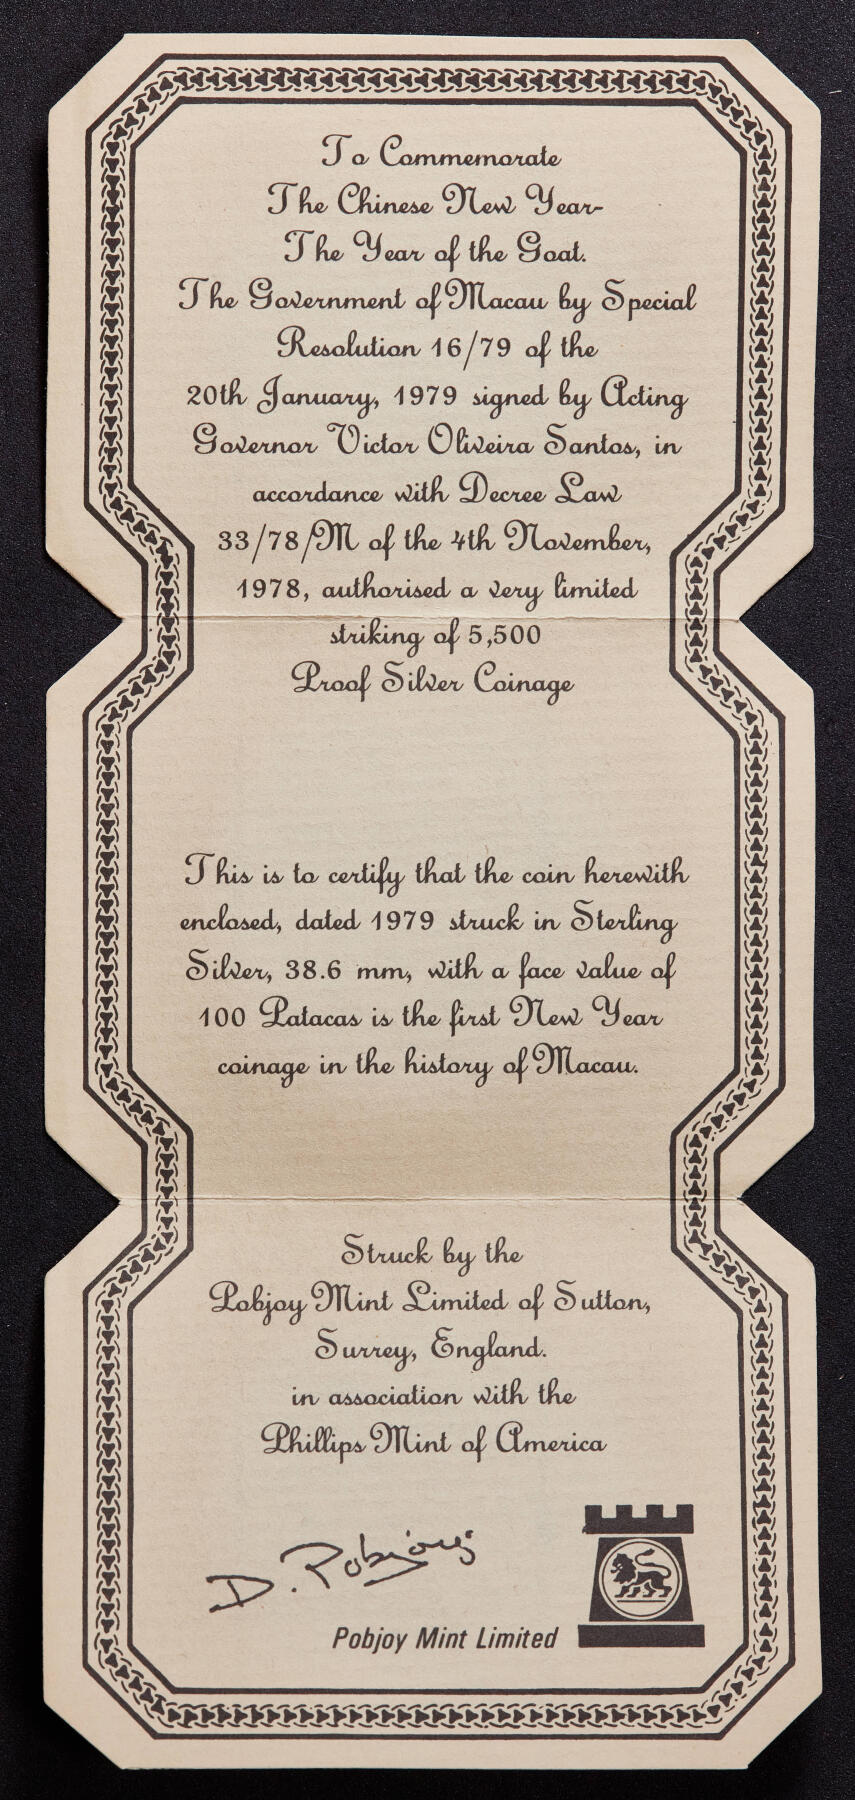 To Commemorate
The Chinese New Year-
The Year of the Goat.
The Government of Macau by Special
Resolution 16/79 of the
20th January, 1979 signed by Acting
Governor Victor Oliveira Santos, in
accordance with Decree Law
33/78/M of the 4th November,
1978, authorised a very limited
striking of 5,500
Proof Silver Coinage
This is to certify that the coin herewith
enclosed, dated 1979 struck in Sterling
Silver, 38.6 mm, with a face value of
100 Patacas is the first New Year
coinage in the history of Macau.
Struck by the
Pobjoy Mint Limited of Sutton,
Surrey, England.
in association with the
Phillips Mint of America
D. Pobjoy
Pobjoy Mint Limited